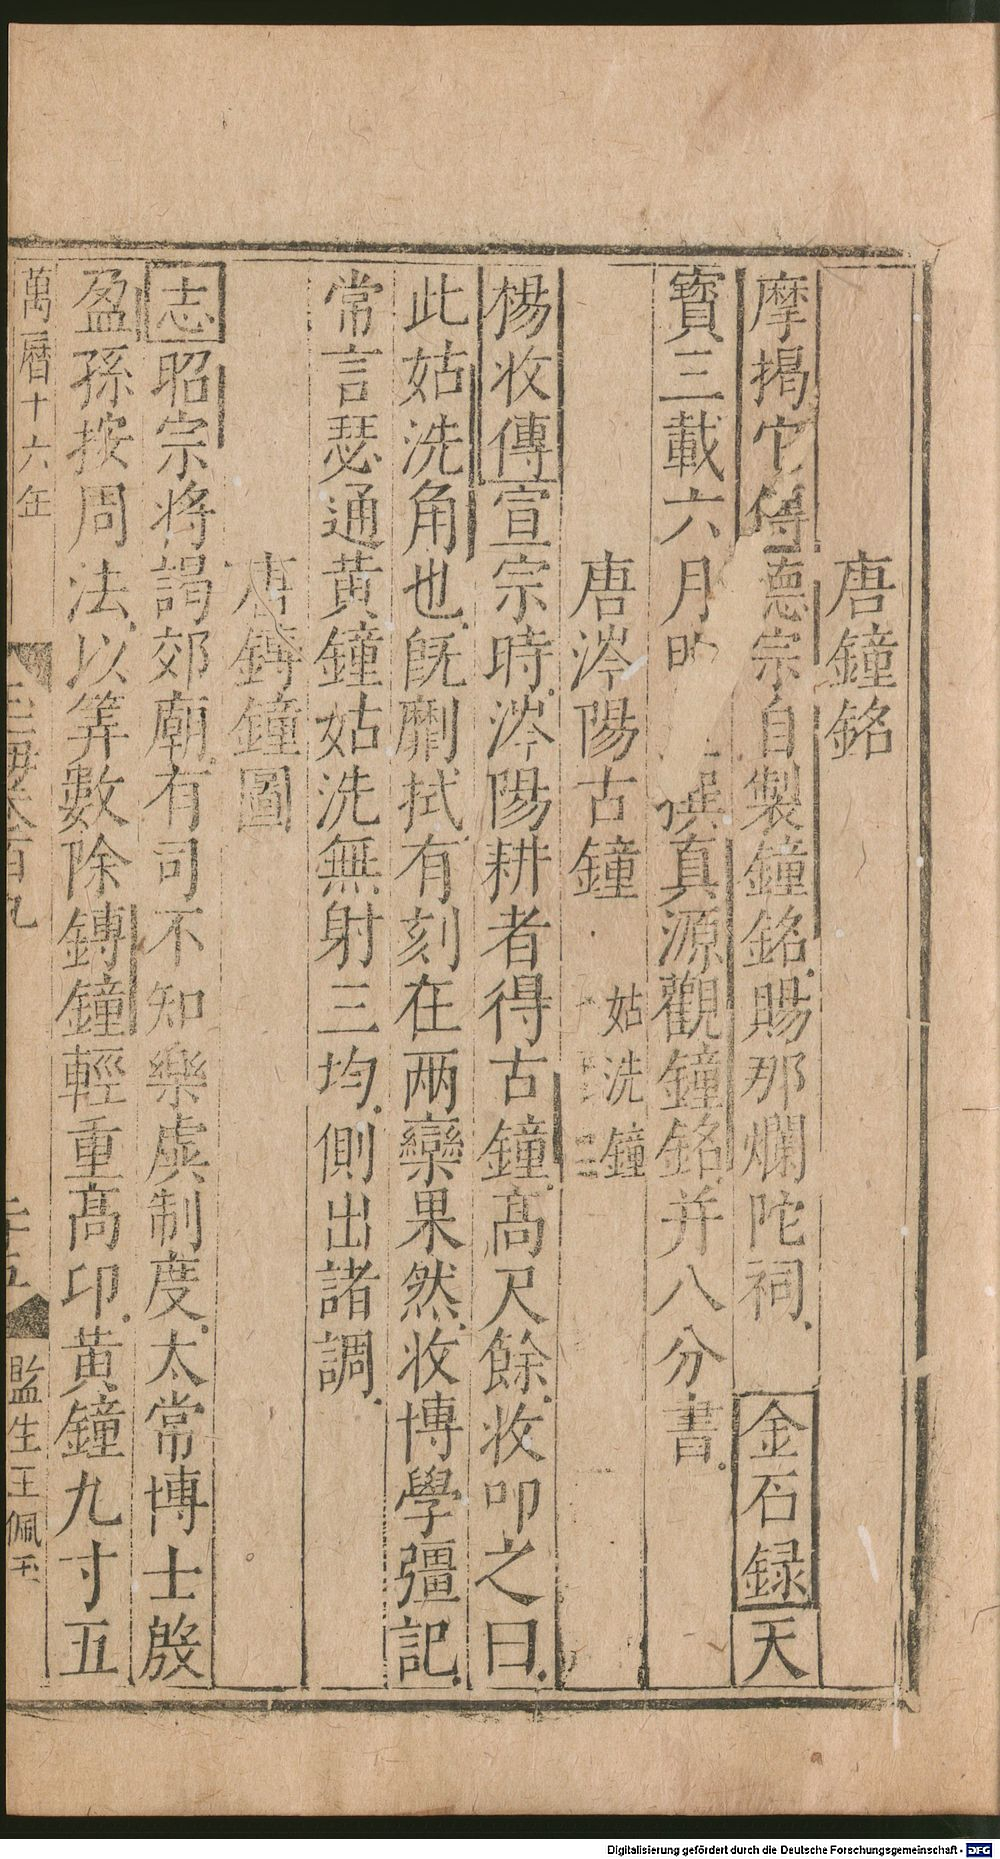 唐鐘銘
摩揭它傳德宗自製鐘銘賜那爛陀祠金石録天
寳三載六月撰真源觀鐘銘并八分書
唐涔陽古鐘姑洗鐘
楊收傳宣宗時涔陽耕者得古鐘髙尺餘收叩之曰
此姑洗角也旣劘拭有刻在兩欒果然收博學彊記
常言瑟通黄鐘姑洗無射三均側出諸調
唐鎛鐘圖
志昭宗將謁郊廟有司不知樂虡制度太常博士殷
盈孫按周法以筭數除鎛鐘輕重髙卬黄鐘九寸五
萬曆十六年 卷百九 監生王佩玉
Digitalisierung gefördert durch die Deutsche Forschungsgemeinschaft - DFG